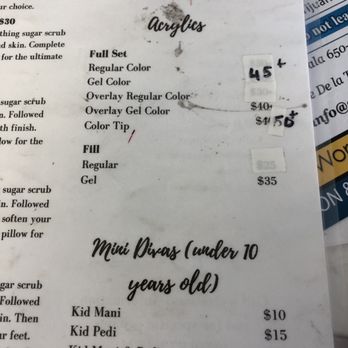 r choice.
$30
thing sugar scrub
d skin. Complete
for the ultimate
sugar scrub
n. Followed
th finish.
low for the
sugar scrub
n. Followed
soften your
pillow for
gar scrub
Followed
in. Then
r feet.
Acrylics
Full Set
Regular Color
Gel Color 45+
Overlay Regular Color
Overlay Gel Color $40
Color Tip 50+
Fill
Regular $25
Gel $35
Mini Divas (under 10
years old)
Kid Mani $10
Kid Pedi $15
not lea
ala 650-
De la T
info@
Wor
ON &